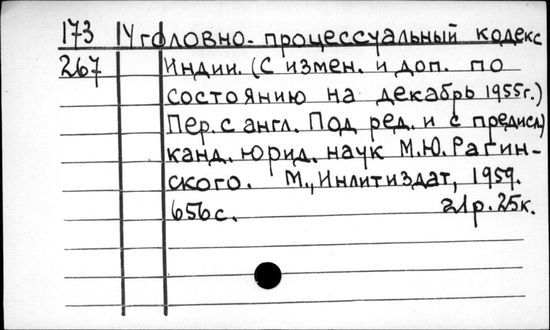 173 Уголовно-процессуальный кодекс
267 Индии. (С измен. и доп. по
состоянию на декабрь 1955г.)
Пер. с англ. Под ред. и с предисл.
канд. юрид. наук М.Ю. Рагин-
ского. М., Инлитиздат, 1959.
656с. 21р. 25к.